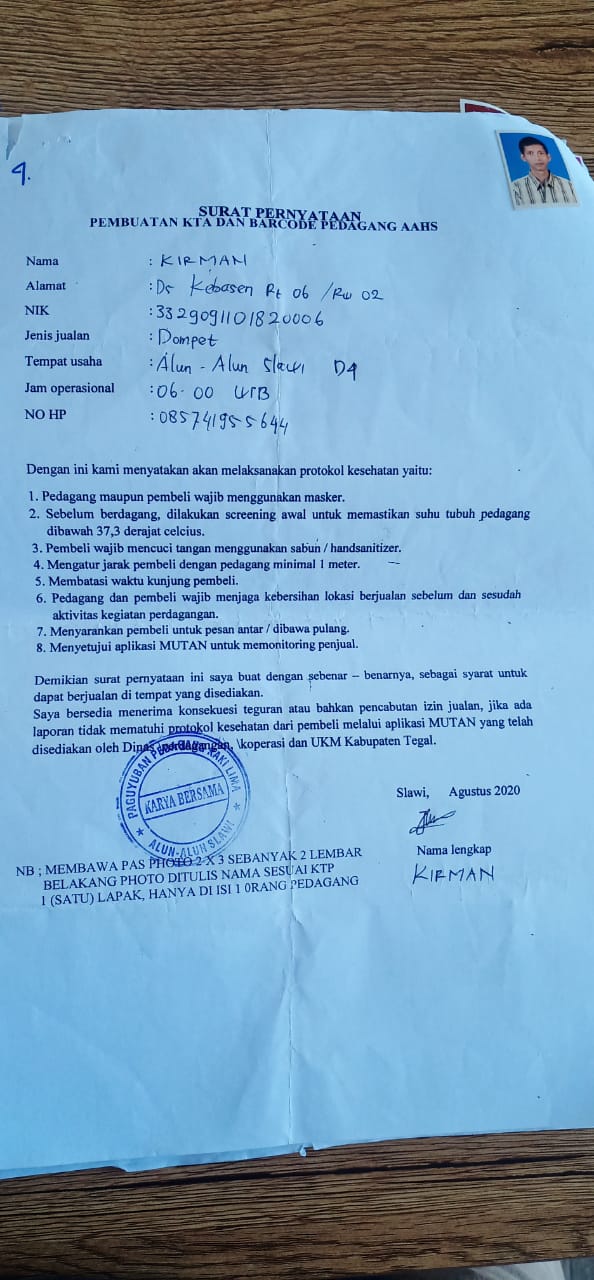 9.
SURAT PERNYATAAN
PEMBUATAN KTA DAN BARCODE PEDAGANG AAHS
Nama : KIRMAN
Alamat : Ds Kebasen Rt 06 / Rw 02
NIK : 3329091101820006
Jenis jualan : Dompet
Tempat usaha : Alun - Alun Slawi D9
Jam operasional : 06.00 WIB
NO HP : 085741955644
Dengan ini kami menyatakan akan melaksanakan protokol kesehatan yaitu:
1. Pedagang maupun pembeli wajib menggunakan masker.
2. Sebelum berdagang, dilakukan screening awal untuk memastikan suhu tubuh pedagang
dibawah 37,3 derajat celcius.
3. Pembeli wajib mencuci tangan menggunakan sabun / handsanitizer.
4. Mengatur jarak pembeli dengan pedagang minimal 1 meter.
5. Membatasi waktu kunjung pembeli.
6. Pedagang dan pembeli wajib menjaga kebersihan lokasi berjualan sebelum dan sesudah
aktivitas kegiatan perdagangan.
7. Menyarankan pembeli untuk pesan antar / dibawa pulang.
8. Menyetujui aplikasi MUTAN untuk memonitoring penjual.
Demikian surat pernyataan ini saya buat dengan sebenar – benarnya, sebagai syarat untuk
dapat berjualan di tempat yang disediakan.
Saya bersedia menerima konsekuesi teguran atau bahkan pencabutan izin jualan, jika ada
laporan tidak mematuhi protokol kesehatan dari pembeli melalui aplikasi MUTAN yang telah
disediakan oleh Dinas perdagangan, \koperasi dan UKM Kabupaten Tegal.
PAGUYUBAN PEDAGANG KAKI LIMA
KARYA BERSAMA
ALUN-ALUN SLAWI
Slawi, Agustus 2020
Nama lengkap
KIRMAN
NB ; MEMBAWA PAS PHOTO 2 X 3 SEBANYAK 2 LEMBAR
BELAKANG PHOTO DITULIS NAMA SESUAI KTP
1 (SATU) LAPAK, HANYA DI ISI 1 0RANG PEDAGANG